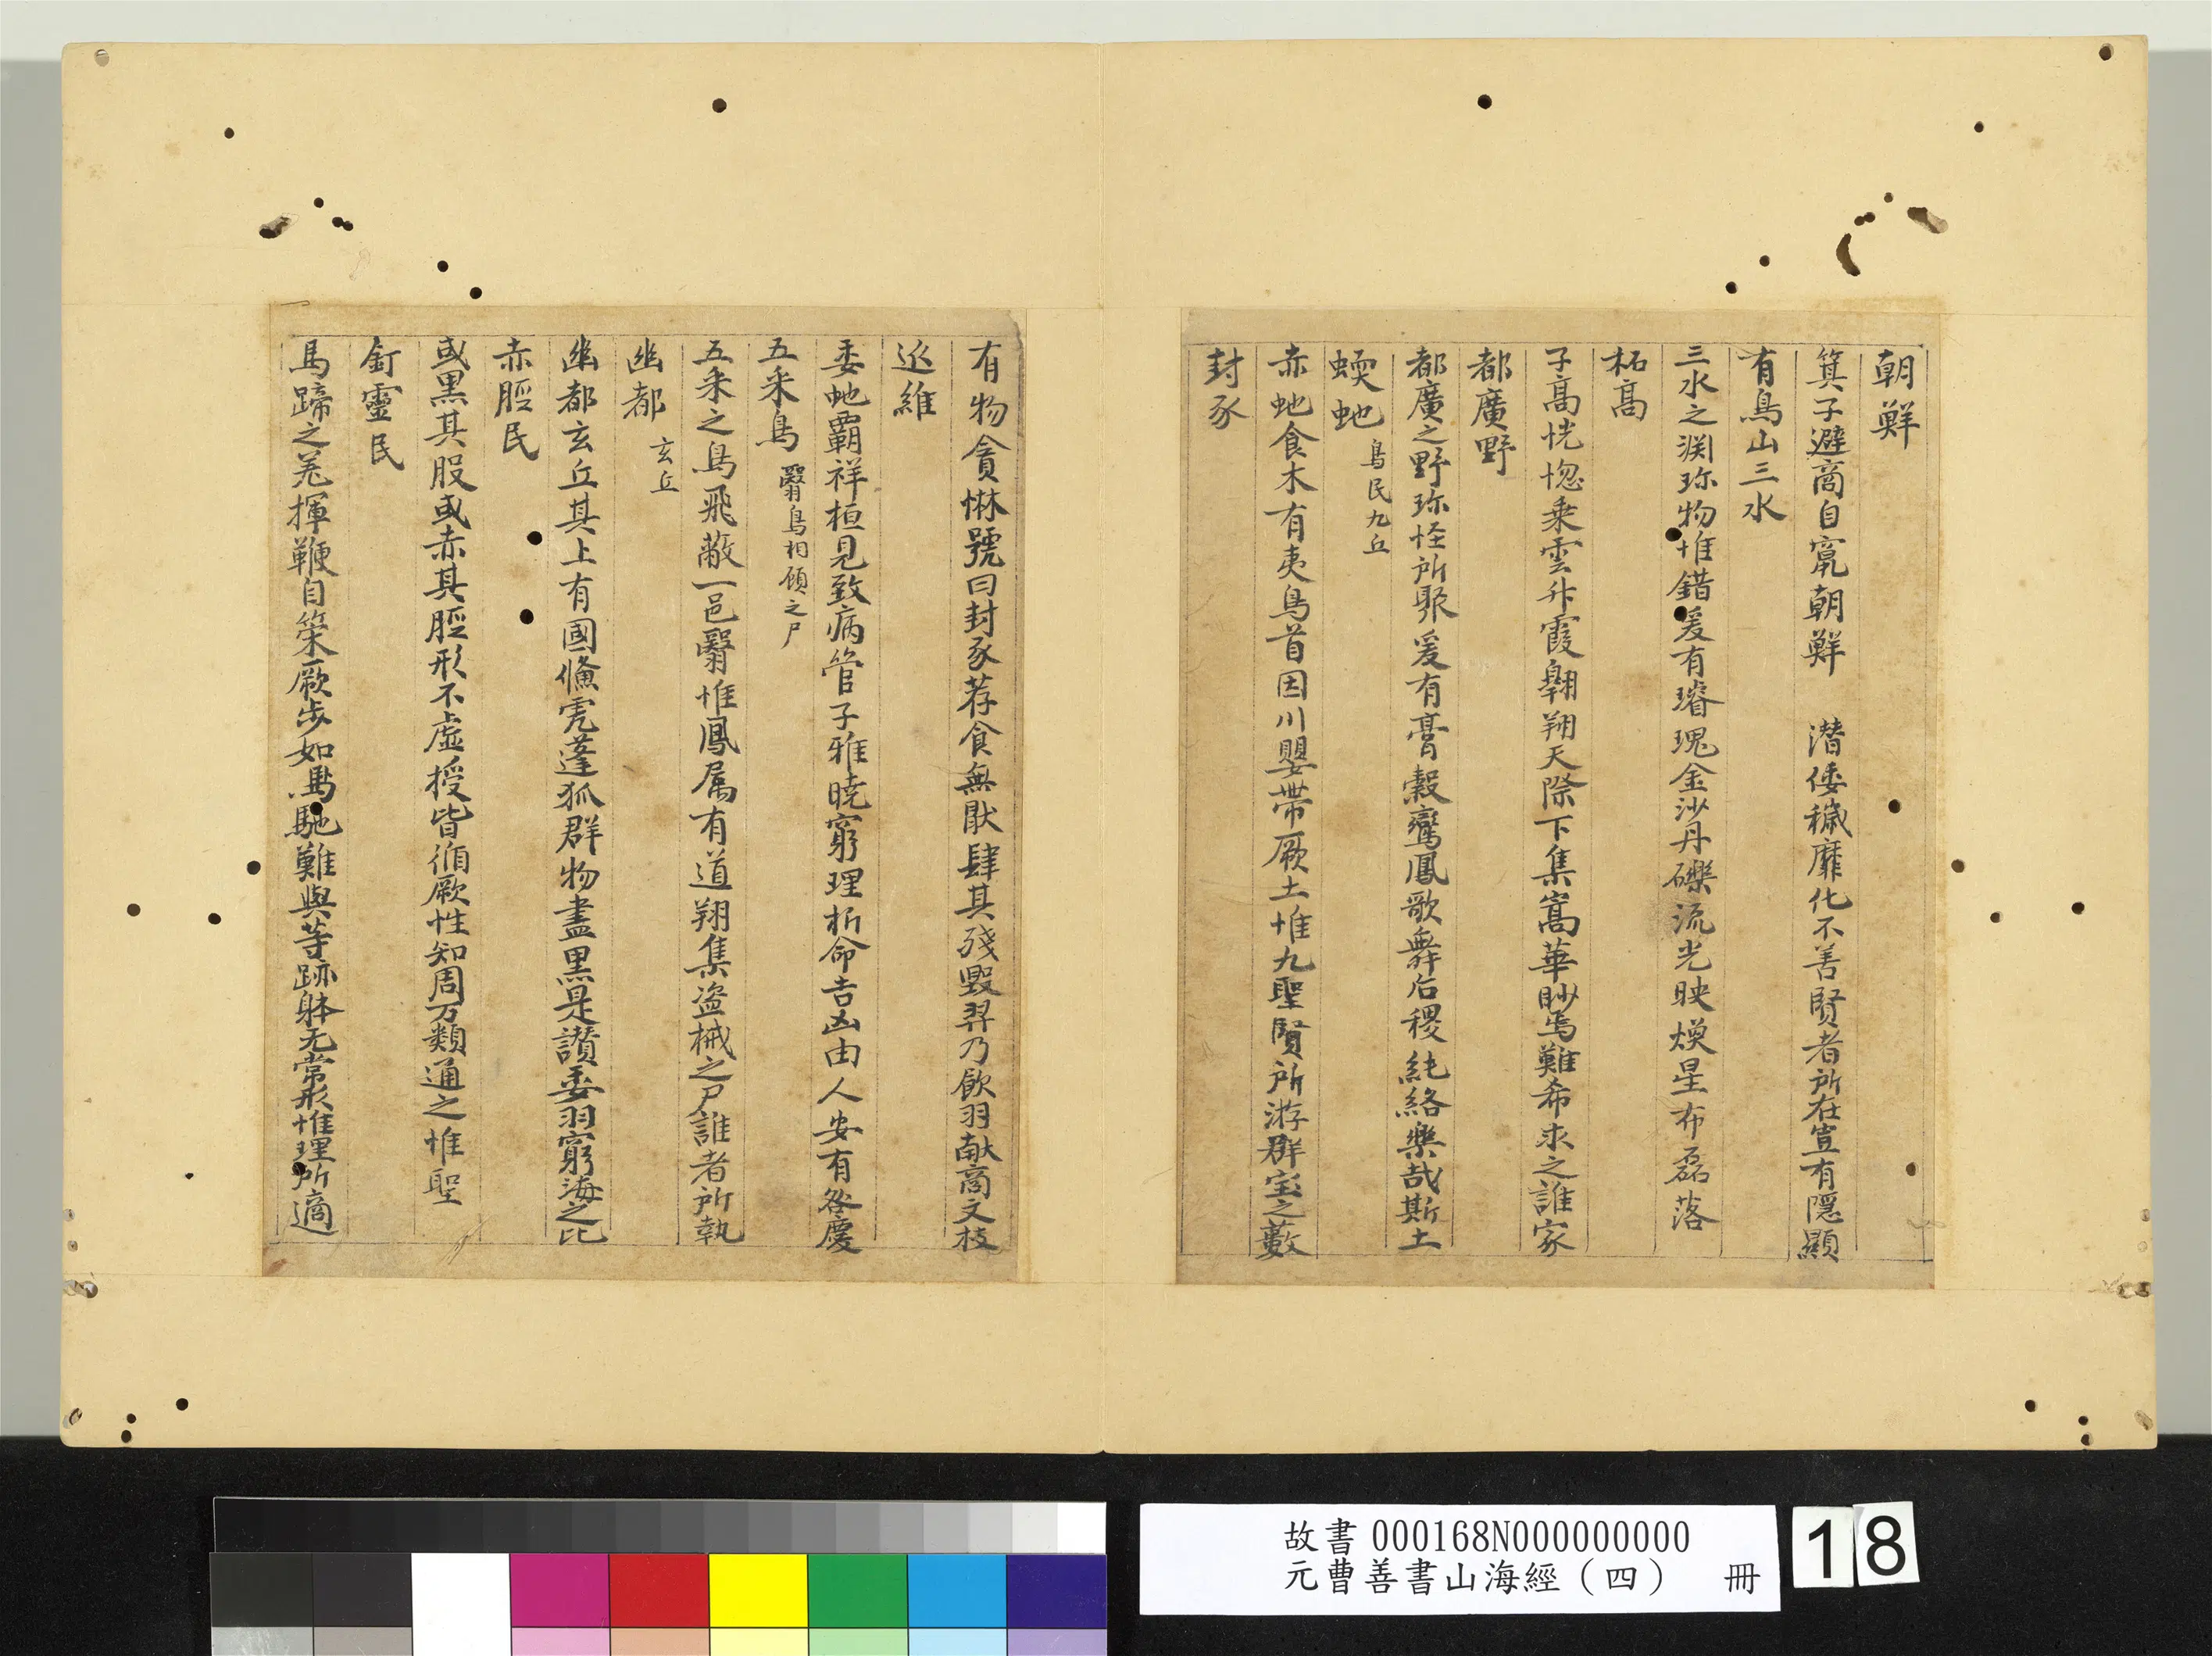 朝鮮
箕子避商自竄朝鮮　潜倭穢靡化不善賢者所在豈有隱顯
有鳥山三水
三水之渕珎物惟錯爰有璿瑰金沙丹礫流光映煥星布磊落
柘高
子高恍惚乗雲升霞翱翔天際下集嵩華眇焉難希求之誰家
都廣野
都廣之野珎怪所聚爰有膏穀鸞鳳歌舞后稷純絡樂哉斯土
蝡虵 鳥民九丘
赤虵食木有夷鳥首因川嬰帶厥土惟九聖賢所游群宝之藪
封豕
有物貪惏號曰封豕荐食無猒肆其殘毀羿乃飲羽献商文枝
延維
委虵霸祥桓見致病管子雅曉窮理析命吉凶由人安有咎慶
五采鳥 翳鳥相顧之尸
五采之鳥飛蔽一邑翳惟鳳属有道翔集盗械之尸誰者所執
幽都 玄丘
幽都玄丘其上有國儵虎蓬狐群物盡黒是讃委羽窮海之北
赤脛民
或黒其股或赤其脛形不虛授皆循厥性知周万類通之惟聖
釘靈民
馬蹄之羌揮鞭自策厥步如馬馳難與等跡躰无常形惟理所適
故書 000168N000000000
元曹善書山海經（四）　冊
18